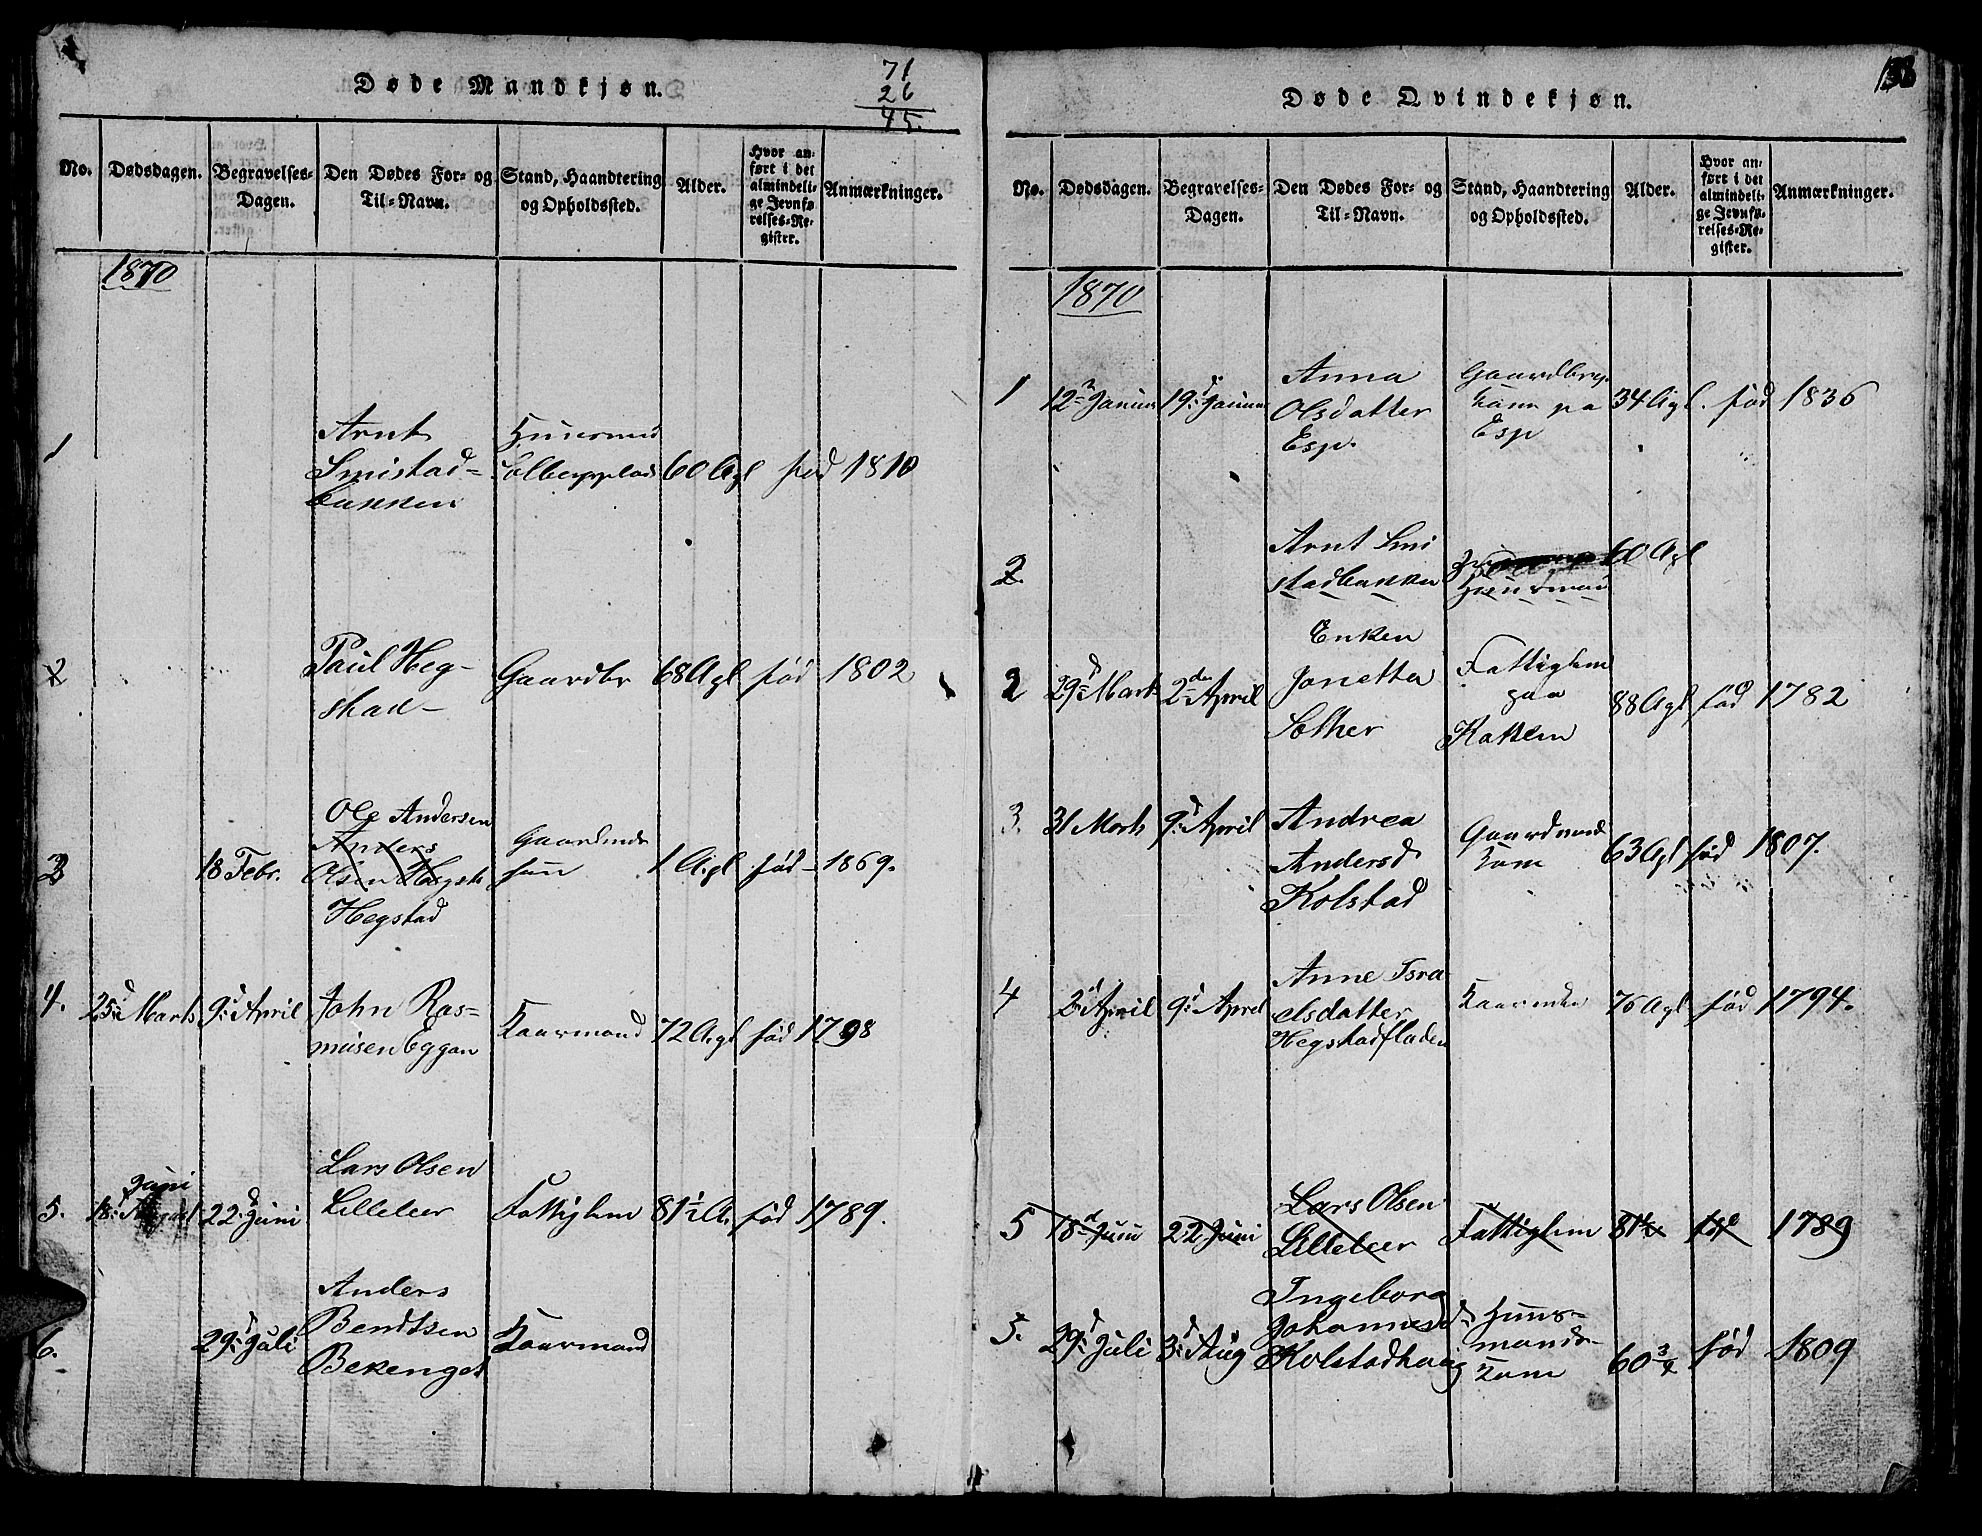 Døde Mandkjøn.
71
26
45.
No.
Dødsdagen.
Begravelses-
Dagen.
Den Dødes For- og
Til-Navn.
Stand, Haandtering
og Opholdssted.
Alder.
Hvor an-
ført i det
almindeli-
ge Jevnfø-
relses-Re-
gister.
Anmærkninger.
1870
1
Arnt
Smistad-
bakken
Huusmand
Solbergplads
60 Agl
fød 1810
2
Paul Heg-
stad-
Gaardbr
68 Agl
fød 1802
3
18 Febr.
Ole Andersen
Anders
Olsen Hegst
Hegstad
Gaardmds
søn
1 Agl
fød 1869.
4.
25d Marts
9d April
John Ras-
musen Eggan
Kaarmand
72 Agl
fød 1798
5.
Juni
18d April
22d Juni
Lars Olsen
Lilleleer
Fattiglem
81½ A.
fød 1789.
6.
29d Juli
Anders
Bendtsen
Bekenget
Kaarmand
Døde Qvindekjøn.
138
No.
Dødsdagen.
Begravelses-
Dagen.
Den Dødes For- og
Til-Navn.
Stand, Haandtering
og Opholdssted.
Alder.
Hvor an-
ført i det
almindeli-
ge Jevnfø-
relses-Re-
gister.
Anmærkninger.
1870
1
12 Januar
19d Januar
Anna
Olsdatter
Esp.
Gaardbrgs
kone pa
Esp
34 Agl.
fød 1836
2.
Arnt Smi
stadbakken
Huusmand
60 Agl
2
29d Marts
2den April
Enken
Jonetta
Sother
Fattiglem
paa
Kattem
88 Agl
fød 1782
3.
31 Marts
9d April
Andrea
Andersd
Kolstad
Gaardmands
Kone
63 Agl
fød 1807.
4
2d April
9d April
Anne Isra
elsdatter
Hegstadfladen
Kaarenke
76 Agl
fød 1794.
5
18d Juni
22 Juni
Lars Olsen
Lilleleer
Fattiglem
81½
fød
1789
5.
29d Juli
3d Aug
Ingeborg
Johannesd
Kolstadhaug
Huus-
mands-
Kone
60¾
fød 1809